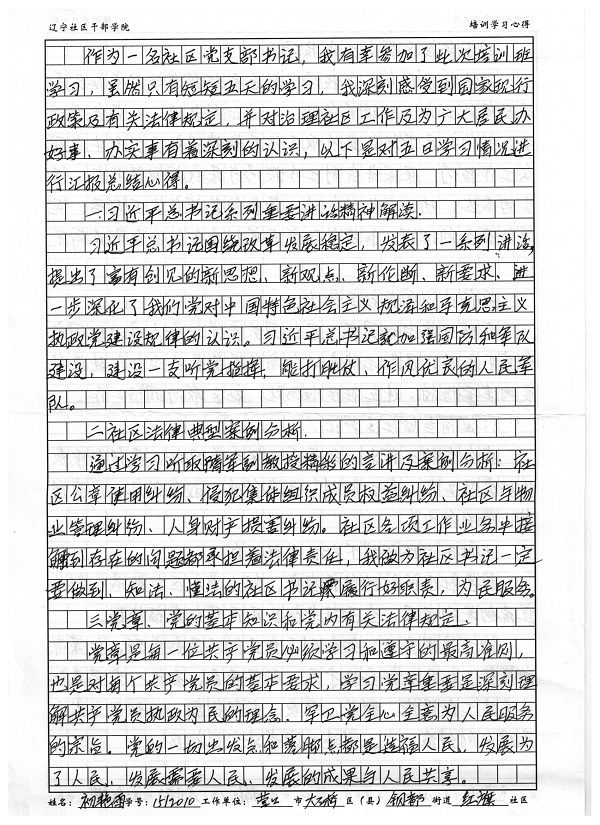 辽宁社区干部学院 培训学习心得
作为一名社区党支部书记，我有幸参加了此次培训班
学习，虽然只有短短五天的学习，我深刻感受到国家现行
政策及有关法律规定，并对治理社区工作及为广大居民办
好事、办实事有着深刻的认识，以下是对五日学习情况进
行汇报总结心得。
一习近平总书记系列重要讲话精神解读.
习近平总书记围绕改革发展稳定，发表了一系列讲话，
提出了富有创见的新思想、新观点、新作断、新要求、进
一步深化了我们党对中国特色社会主义规律和马克思主义
执政党建设规律的认识。习近平总书记就加强国防和军队
建设，建设一支听党指挥，能打胜仗、作风优良的人民军
队。
二社区法律典型案例分析.
通过学习听取隋军副教授精彩的宣讲及案例分析：社
区公章使用纠纷、侵犯集体组织成员权益纠纷、社区与物
业管理纠纷、人身财产损害纠纷。社区各项工作业务中接
触到存在的问题都承担着法律责任，我做为社区书记一定
要做到、知法、懂法的社区书记履行好职责，为民服务。
三党章、党的基本知识和党内有关法律规定.
党章是每一位共产党员必须学习和遵守的最高准则，
也是对每个共产党员的基本要求，学习党章重要是深刻理
解共产党员执政为民的理念.牢卫党全心全意为人民服务
的宗旨。党的一切出发点和落脚点都是造福人民，发展为
了人民、发展需要人民、发展的成果与人民共享。
姓名：初艳雨 学号：1512010 工作单位：营口 市 大石桥 区（县）钢都 街道 红旗 社区